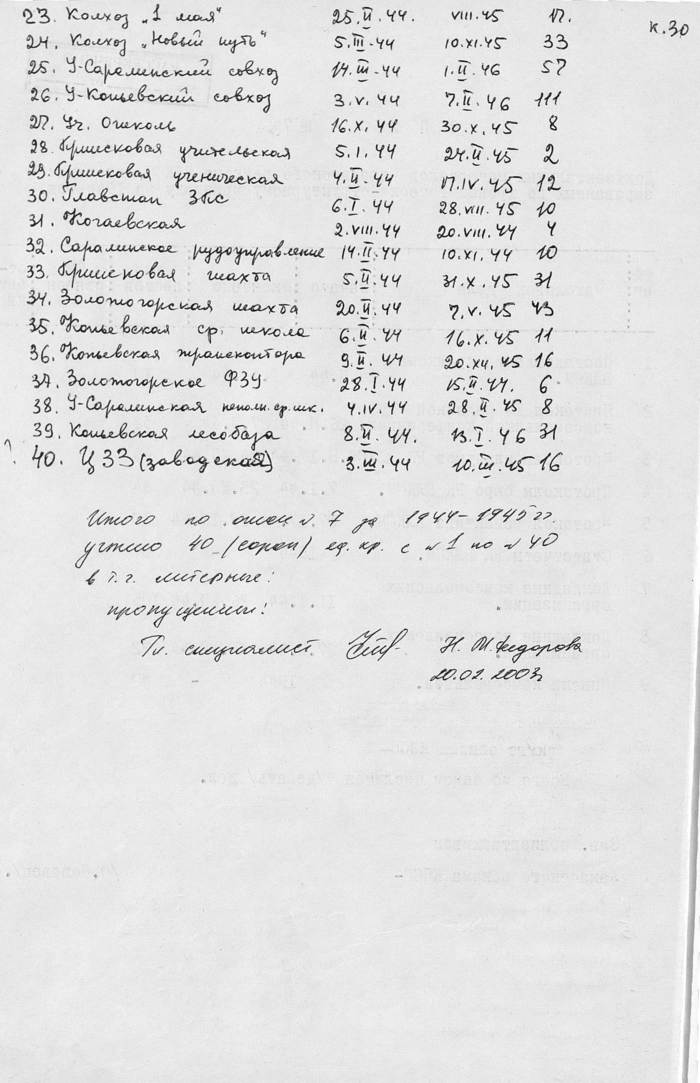 23. Колхоз „1 мая" 25.II.44. VIII.45 17.
к.30
24. Колхоз „Новый путь" 5.III.44 10.XI.45 33
25. У-Саралинский совхоз 14.III.44 1.II.46 57
26. У-Копьевский совхоз 3.V.44 7.II.46 111
27. Уч. Ошколь 16.X.44 30.X.45 8
28. Приисковая учительская 5.I.44 24.II.45 2
29. Приисковая ученическая 4.II.44 17.IV.45 12
30. Главстан ЗПС 6.I.44 28.VIII.45 10
31. 2.VIII.44 20.VIII.44 4
32. Саралинское рудоуправление 14.II.44 10.XI.44 10
33. Приисковая шахта 5.II.44 31.X.45 31
34. Золотогорская шахта 20.II.44 7.V.45 43
35. Копьевская ср. школа 6.II.44 16.X.45 11
36. Копьевская трансконтора 9.II.44 20.XII.45 16
37. Золотогорское ФЗУ 28.I.44 15.II.44. 6
38. У-Саралинская неполн. ср. шк. 4.IV.44 28.II.45 8
39. Копьевская лесобаза 8.II.44. 13.I.46 31
? 40. ЦЗЗ (заводская) 3.III.44 10.III.45 16
Итого по описи № 7 за 1944-1945 гг
учтено 40 (сорок) ед. хр. с № 1 по № 40
в т.ч. литерные:
пропущенные:
Гл. специалист Н. М. Федорова
20.02.2003г